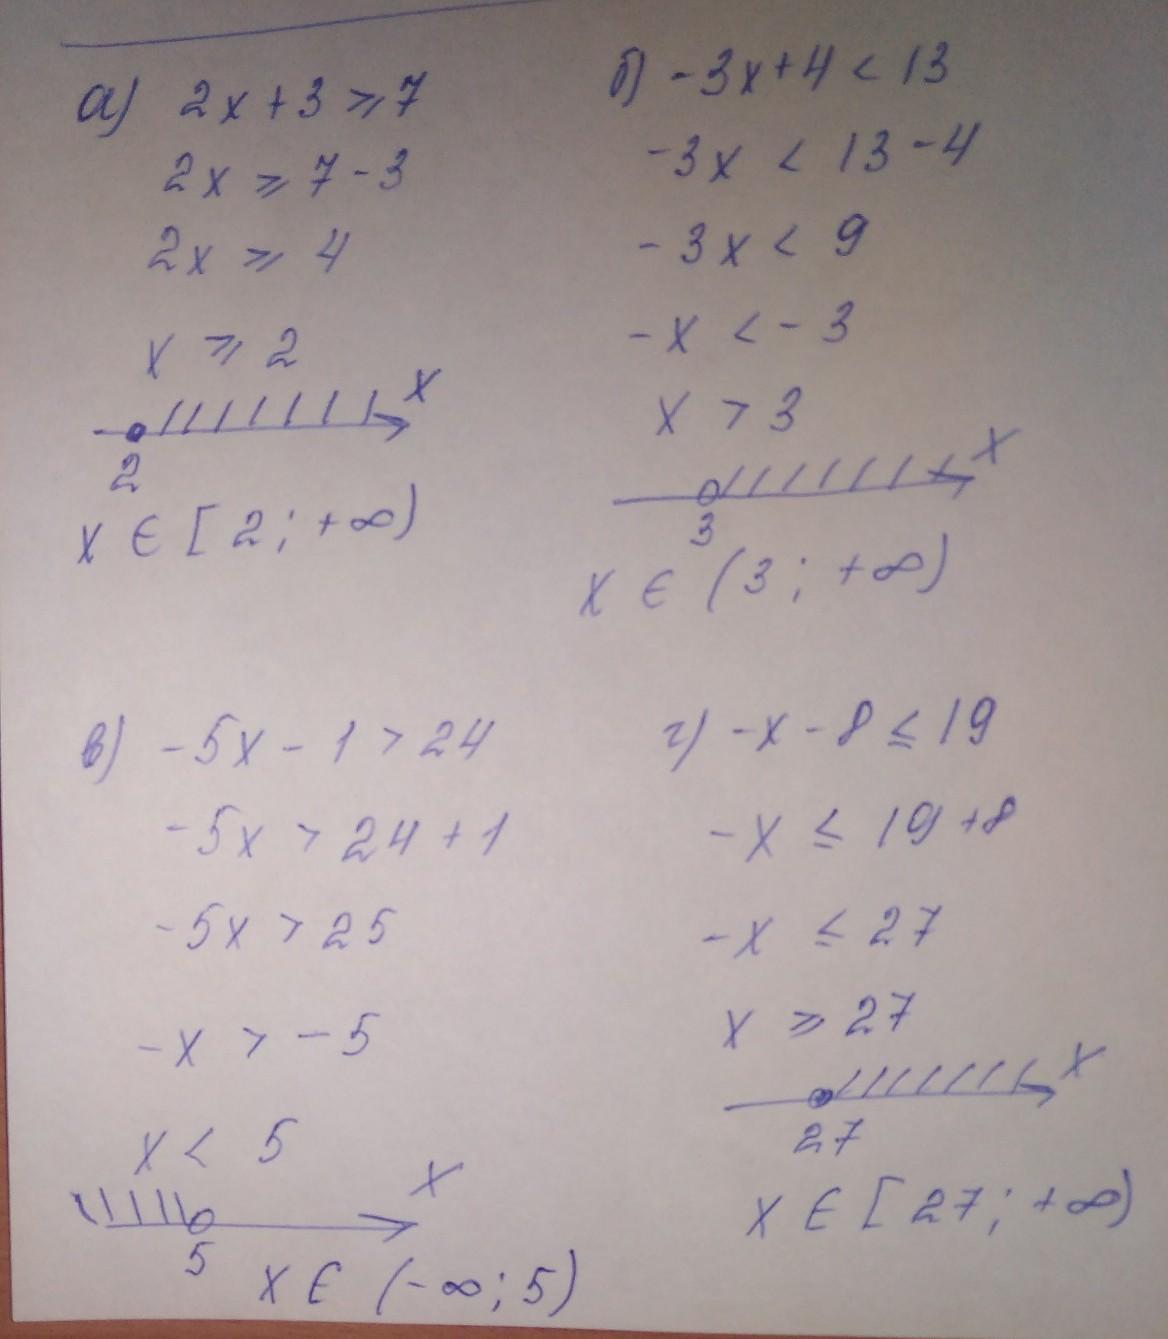 а) 2x+3≥7
2x≥7-3
2x≥4
x≥2
x
2
x∈[2;+∞)
б) -3x+4<13
-3x<13-4
-3x<9
-x<-3
x>3
x
3
x∈(3;+∞)
в) -5x-1>24
-5x>24+1
-5x>25
-x>-5
x<5
x
5
x∈(-∞;5)
г) -x-8≤19
-x≤19+8
-x≤27
x≥27
x
27
x∈[27;+∞)